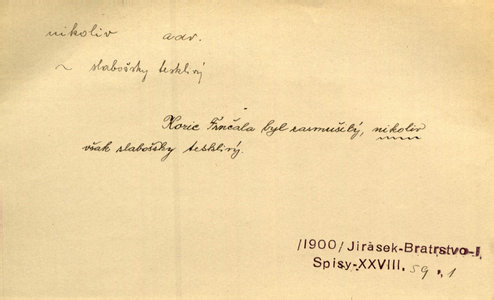 nikoliv adv.
~ slabošsky tesklivý
Kozic Trnčala byl zasmušilý, nikoliv
však slabošsky tesklivý.
/1900/ Jirásek-Bratrstvo-I
Spisy-XXVIII. 59.1